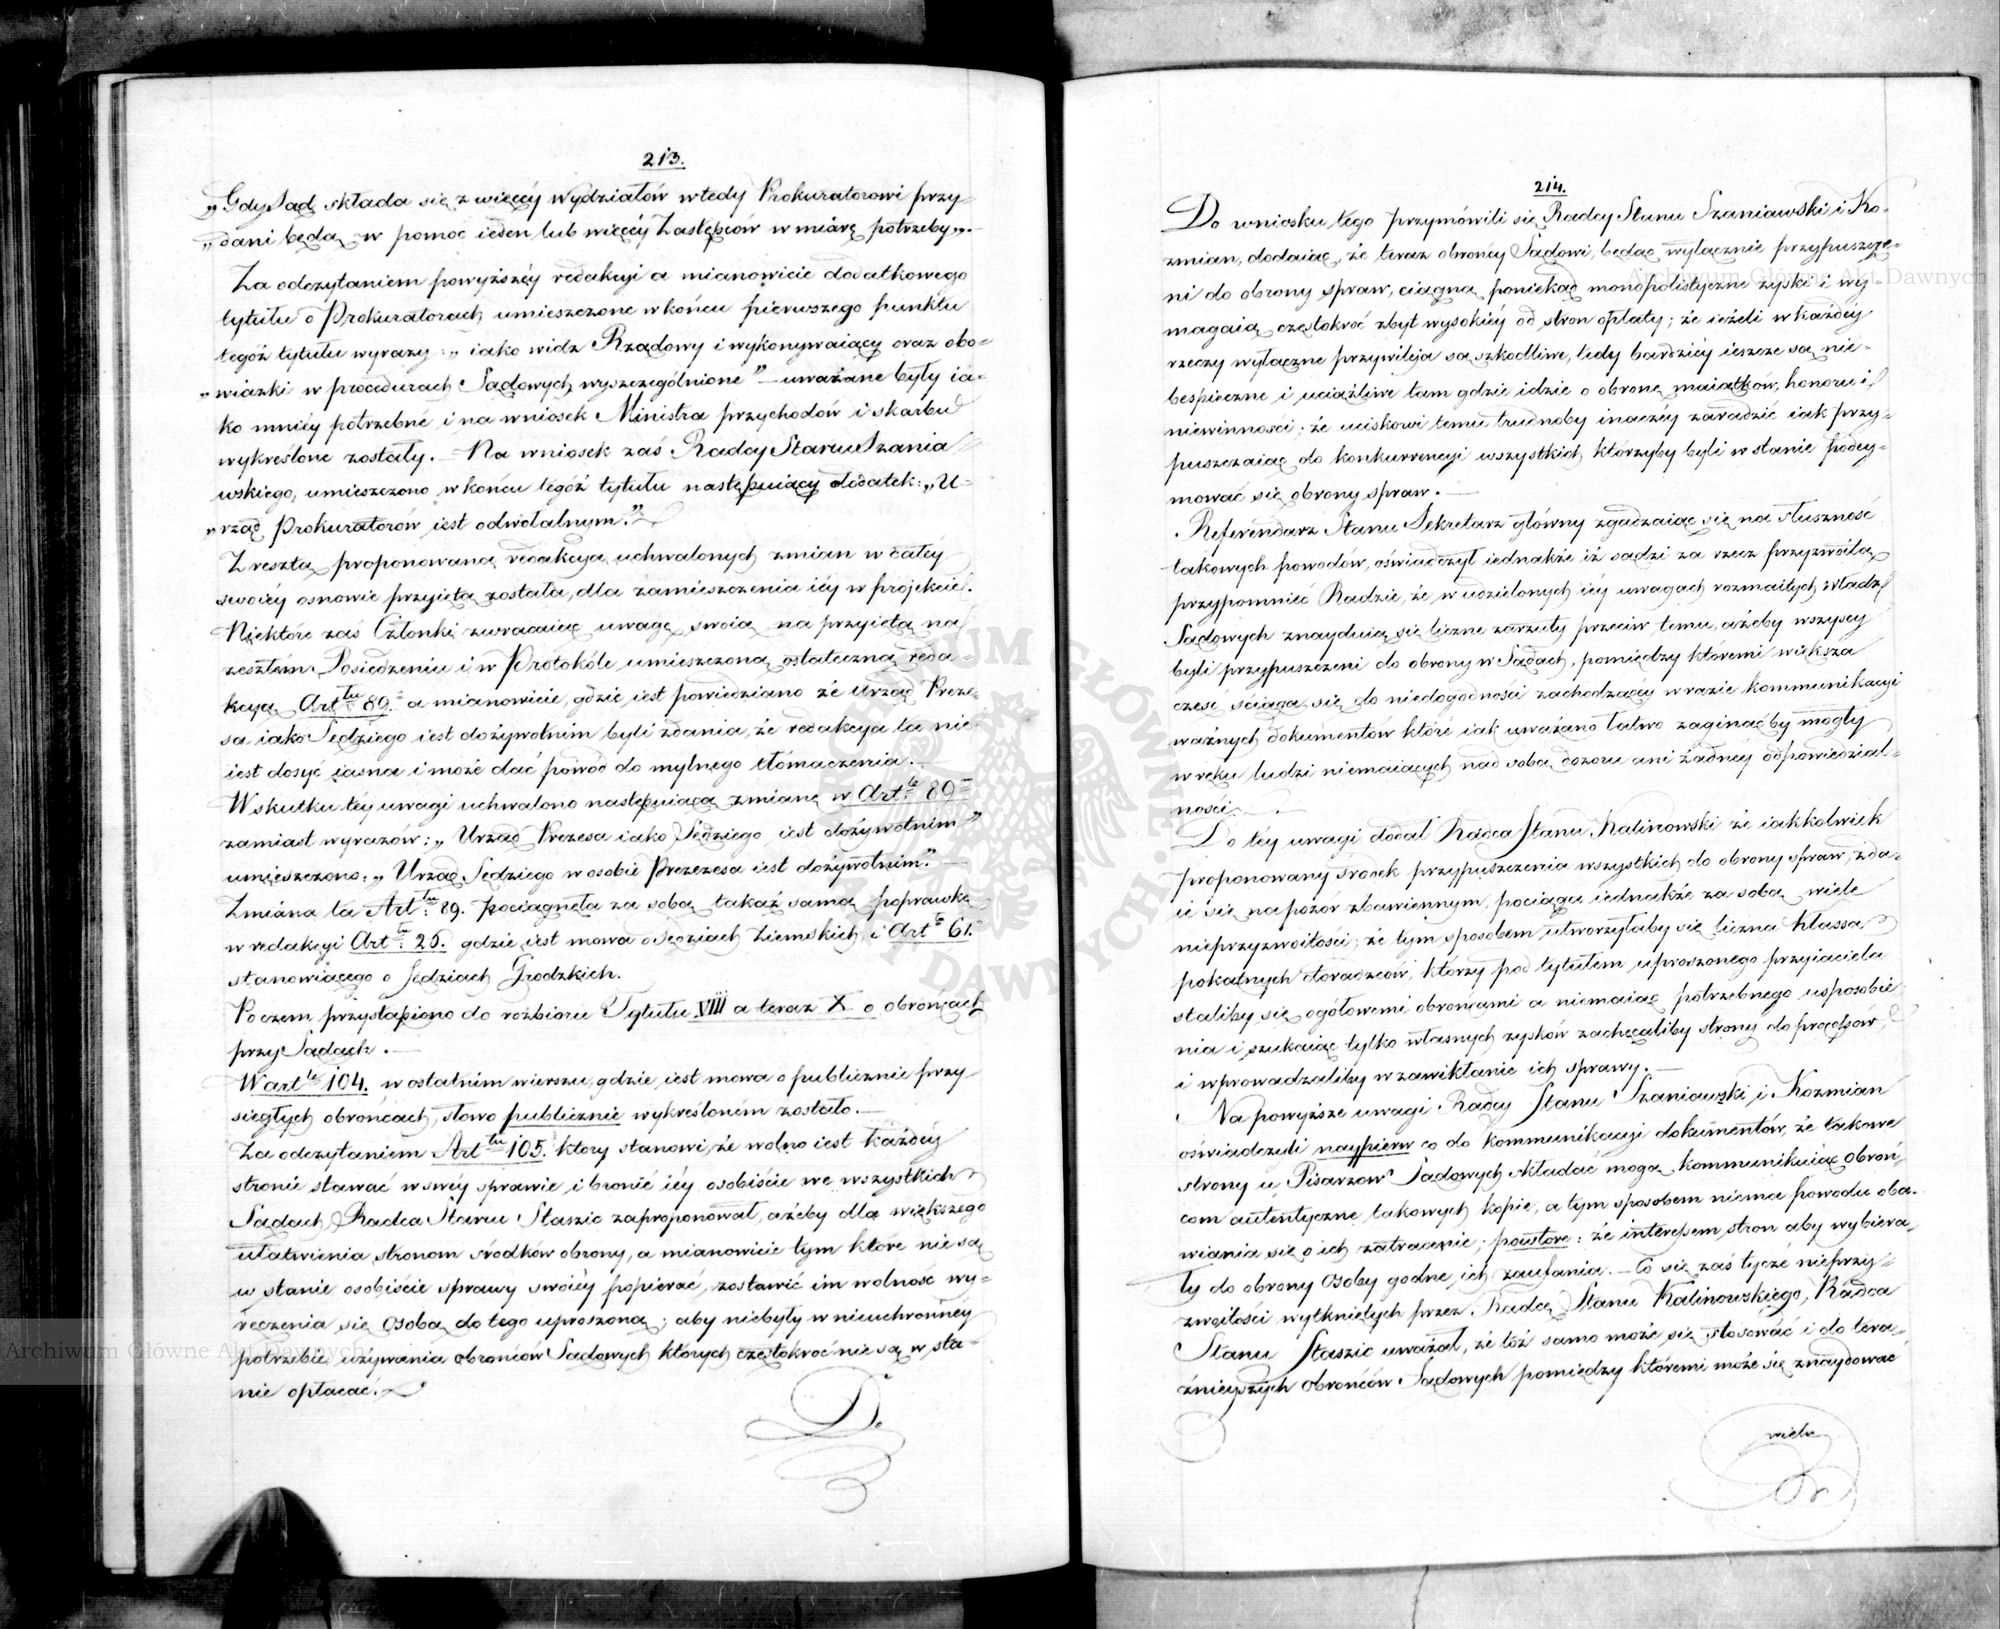 213.
„Gdy Sąd składa się z więcéy Wydziałów wtedy Prokuratorowi przy„
„dani będą w pomoc ieden lub więcéy Zastępców w miarę potrzeby„.—
Za odczytaniem powyższéy redakcyi a mianowicie dodatkowego
tytułu o Prokuratorach umieszczone w końcu pierwszego punktu
tegóż tytułu wyrazy: „iako widz Rządowy i wykonywaiący oraz obo-
„wiązki w procedurach Sądowych wyszczególnione" — uważane były ia-
ko mniéy potrzebné i na wniosek Ministra przychodów i skarbu
wykreślone zostały. — Na wniosek zaś Radcy Stanu Szania
wskiego, umieszczono w końcu tegóż tytułu następuiący dodatek: „U-
„rząd Prokuratorów iest odwołalnym."
Zresztą proponowana redakcya uchwalonych zmian w całéy
swoiéy osnowie przyięta została, dla zamieszczenia iéy w projekcie.
Niektóre zaś Członki zwracaiąc uwagę swoią na przyiętą na
zeszłém Posiedzeniu i w Protokóle umieszczoną ostateczną reda-
kcyą Art.tu 89.° a mianowicie, gdzie iest powiedziano że Urząd Preze-
sa iako Sędziego iest dożywotnim byli zdania, że redakcya ta nie
iest dosyć iasna i może dać powód do mylnego tłómaczenia.—
W skutku téy uwagi uchwalono następuiącą zmianę w Art.le 89
zamiast wyrazów: „Urząd Prezesa iako Sędziego iest dożywotnim"
umieszczono: „Urząd Sędziego w osobie Prezezesa iest dożywotnim."—
Zmiana ta Art.tu 89. pociągnęła za sobą takąż samą poprawkę
w redakcyi Art.tu 25. gdzie iest mowa o Sędziach Ziemskich i Art.le 61.
stanowiącego o Sędziach Grodzkich.
Poczem przystąpiono do rozbioru Tytułu VIII a teraz X o obrońcach
przy Sądach.—
W art.le 104. w ostatnim wierszu, gdzie iest mowa o publicznie przy
sięgłych obrońcach, słowo publicznie wykreśloném zostało.—
Za odczytaniem Art.tu 105. który stanowi, że wolno iest każdéy
stronie stawać w swéy sprawie i bronić iéy osobiście we wszystkich
Sądach Radca Stanu Staszic zaproponował, ażeby dla większego
ułatwienia stronom środków obrony, a mianowicie tym które nie są
w stanie osobiście sprawy swoiéy popierać, zostawić im wolność wy-
ręczenia się osobą do tego uproszoną; aby niebyły w nieuchronnéy
potrzebie używania obrońców Sądowych których częstokroć nie są w sta-
nie opłacać.
Do
214.
Do wniosku tego przymówili się Radcy Stanu Szaniawski i Ko-
zmian, dodaiąc, że teraz obrońcy Sądowi, będąc wyłącznie przypuszcze-
ni do obrony spraw, ciągną poniekąd monopolistyczne zyski i wy-
magaią częstokroć zbyt wysokiéy od stron opłaty; że ieżeli w każdéy
rzeczy wyłączne przywileja są szkodliwe, tedy bardziéy ieszcze są nie-
bespieczne i uciążliwe tam gdzie idzie o obronę maiątków, honoru i
niewinności; że uciskowi temu trudnoby inaczéy zaradzić iak przy-
puszczaiąc do konkurrencyi wszystkich którzyby byli w stanie podey-
mować się obrony spraw.—
Referendarz Stanu Sekretarz główny zgadzaiąc się na słuszność
takowych powodów, oświadczył iednakże iż sądzi za rzecz przyzwoitą
przypomnieć Radzie, że w udzielonych iéy uwagach rozmaitych władz
Sądowych znayduią się liczne zarzuty przeciw temu, ażeby wszyscy
byli przypuszczeni do obrony w Sądach, pomiędzy któremi większa
część ściąga się do niedogodności zachodzącéy w razie kommunikacyi
ważnych dokumentów które iak uważano łatwo zaginąćby mogły
w ręku ludzi niemaiących nad sobą dozoru ani żadney odpowiedzial-
ności.—
Do téy uwagi dodał Radca Stanu Kalinowski że iakkolwiek
proponowany środek przypuszczenia wszystkich do obrony spraw, zda-
ie się napozór zbawiennym, pociąga iednakże za sobą wiele
nieprzyzwoitości; że tym sposobem utworzyłaby się liczna klassa
pokątnych doradzców, którzy pod tytułem uproszonego przyiaciela
staliby się ogółowemi obrońcami a niemaiąc potrzebnego usposobie
nia i szukaiąc tylko własnych zysków zachęcaliby strony do processow,
i wprowadzaliby w zawikłanie ich sprawy.—
Na powyższe uwagi Radcy Stanu Szaniawski i Kozmian
oświadczyli naypierw co do kommunikacyi dokumentów, że takowe
strony u Pisarzow Sądowych składać mogą kommunikuiąc obroń„
com autentyczne takowych kopie, a tym sposobem niema powodu oba-
wiania się o ich zatracenie; powtóre: że interesem stron aby wybiera„
ły do obrony osoby godne ich zaufania.— Co się zaś tyczé nieprzy„
zwoitości wytkniętych przez Radcę Stanu Kalinowskiego, Radca
Stanu Staszic uważał, że tóż samo może się stosować i do tera„
źnieyszych obrońców Sądowych pomiędzy któremi może się znaydować
wielu
Archiwum Główne Akt Dawnych
Archiwum Główne Akt Dawnych
ARCHIWUM GŁÓWNE AKT DAWNYCH